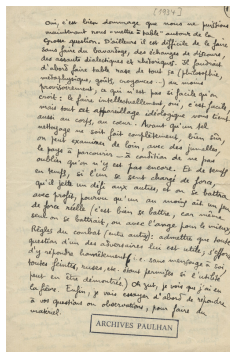 [1934]
Oui, c'est bien dommage que nous ne puissions
maintenant nous "mettre à table" autour de la
grosse question. D'ailleurs il est difficile de le faire
sans faire du bavardage, des échanges de défenses,
des assauts dialectiques et rhétoriques. Il faudrait
d'abord faire table rase de tout ça (philosophie,
métaphysique, goûts, croyances...) au moins
provisoirement, ce qui n'est pas si facile qu'on
croit : le faire intellectuellement, oui, c'est facile,
mais tout cet appareillage idéologique vous tient
aussi au corps, au cœur. Avant qu'un tel
nettoyage ne soit fait complètement, bien sûr
on peut examiner de loin, avec des jumelles,
le pays à parcourir — à condition de ne pas
oublier qu'on n'y est pas encore. Et de temps
en temps, si l'un se sent chargé de force,
qu'il jette un défi aux autres, et on se battra
avec profit, pourvu qu'un au moins ait un peu
de force réelle (c'est bien se battre, car même
seul on se battrait, ou avec l'ange pour le mieux).
Règles du combat (entre autres) : admettre que toute
question d'un des adversaires lui est utile, s'efforcer
d'y répondre honnêtement, i. e. sans mensonge à soi
toutes feintes, ruses, etc. étant permises si l'utilité
peut en être démontrée). Ouf, je vois que j'ai eu
la fièvre. Enfin, je vais essayer d'abord de répondre
à vos questions ou observations, pour faire du
matériel.
ARCHIVES PAULHAN